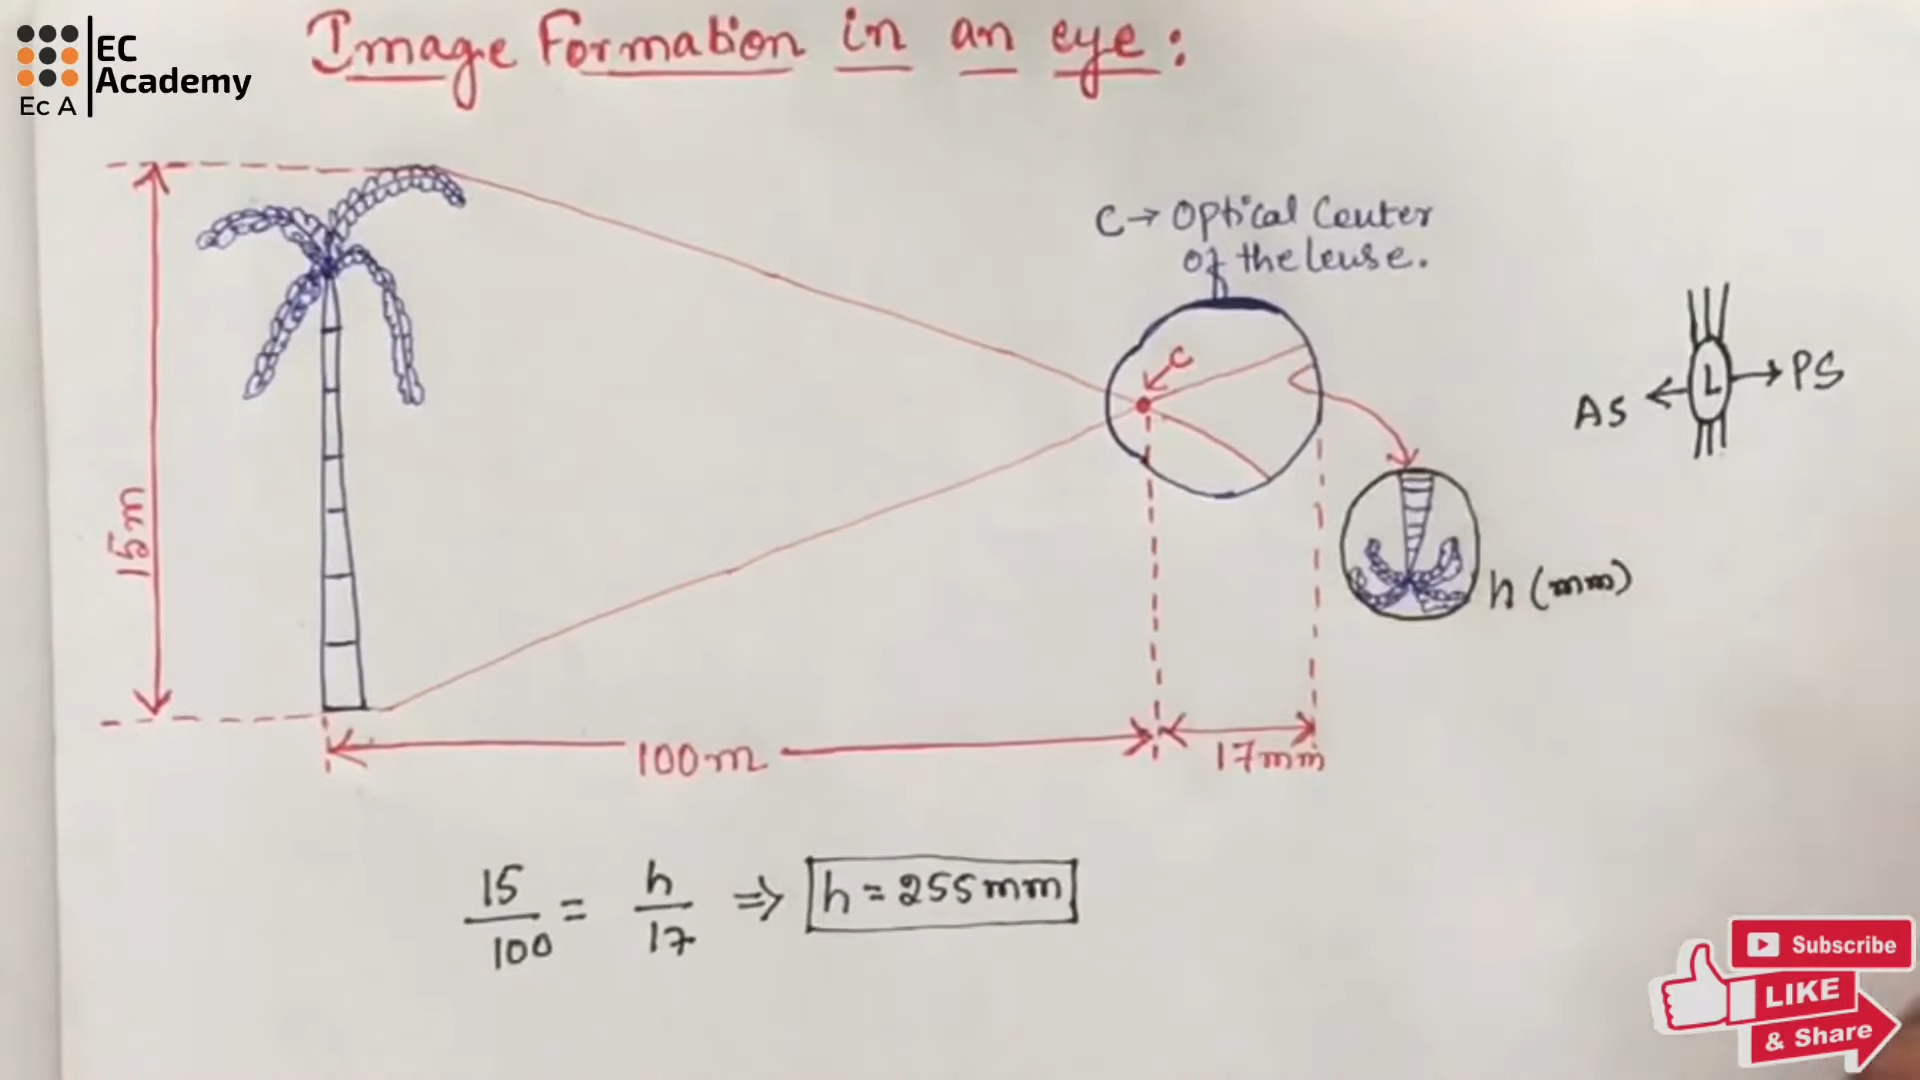 EC
Academy
Ec A
Image Formation in an eye:
C→ Optical Center
of the lense.
C
L
PS
AS
15m
h (mm)
100m
17mm
15/100 = h/17 ⇒ h = 255mm
Subscribe
LIKE
& Share